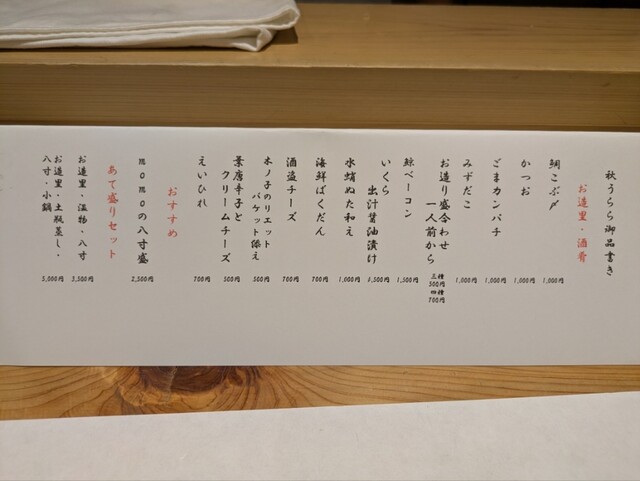 秋うらら御品書き
お造里・酒肴
鯛こぶ〆 1,000円
かつお 1,000円
ごまカンパチ 1,000円
みずだこ 1,000円
お造り盛合わせ
一人前から
三種
500円
四種
700円
鯨ベーコン 1,500円
いくら
出汁醤油漬け 1,300円
水蛸ぬた和え 1,000円
海鮮ばくだん 700円
酒盗チーズ 700円
木ノ子のリエット
バケット添え 500円
葉唐辛子と
クリームチーズ 500円
えいひれ 700円
おすすめ
の八寸盛 2,500円
あて盛りセット
お造里・温物・八寸 3,500円
お造里・土瓶蒸し・
八寸・小鍋 5,000円